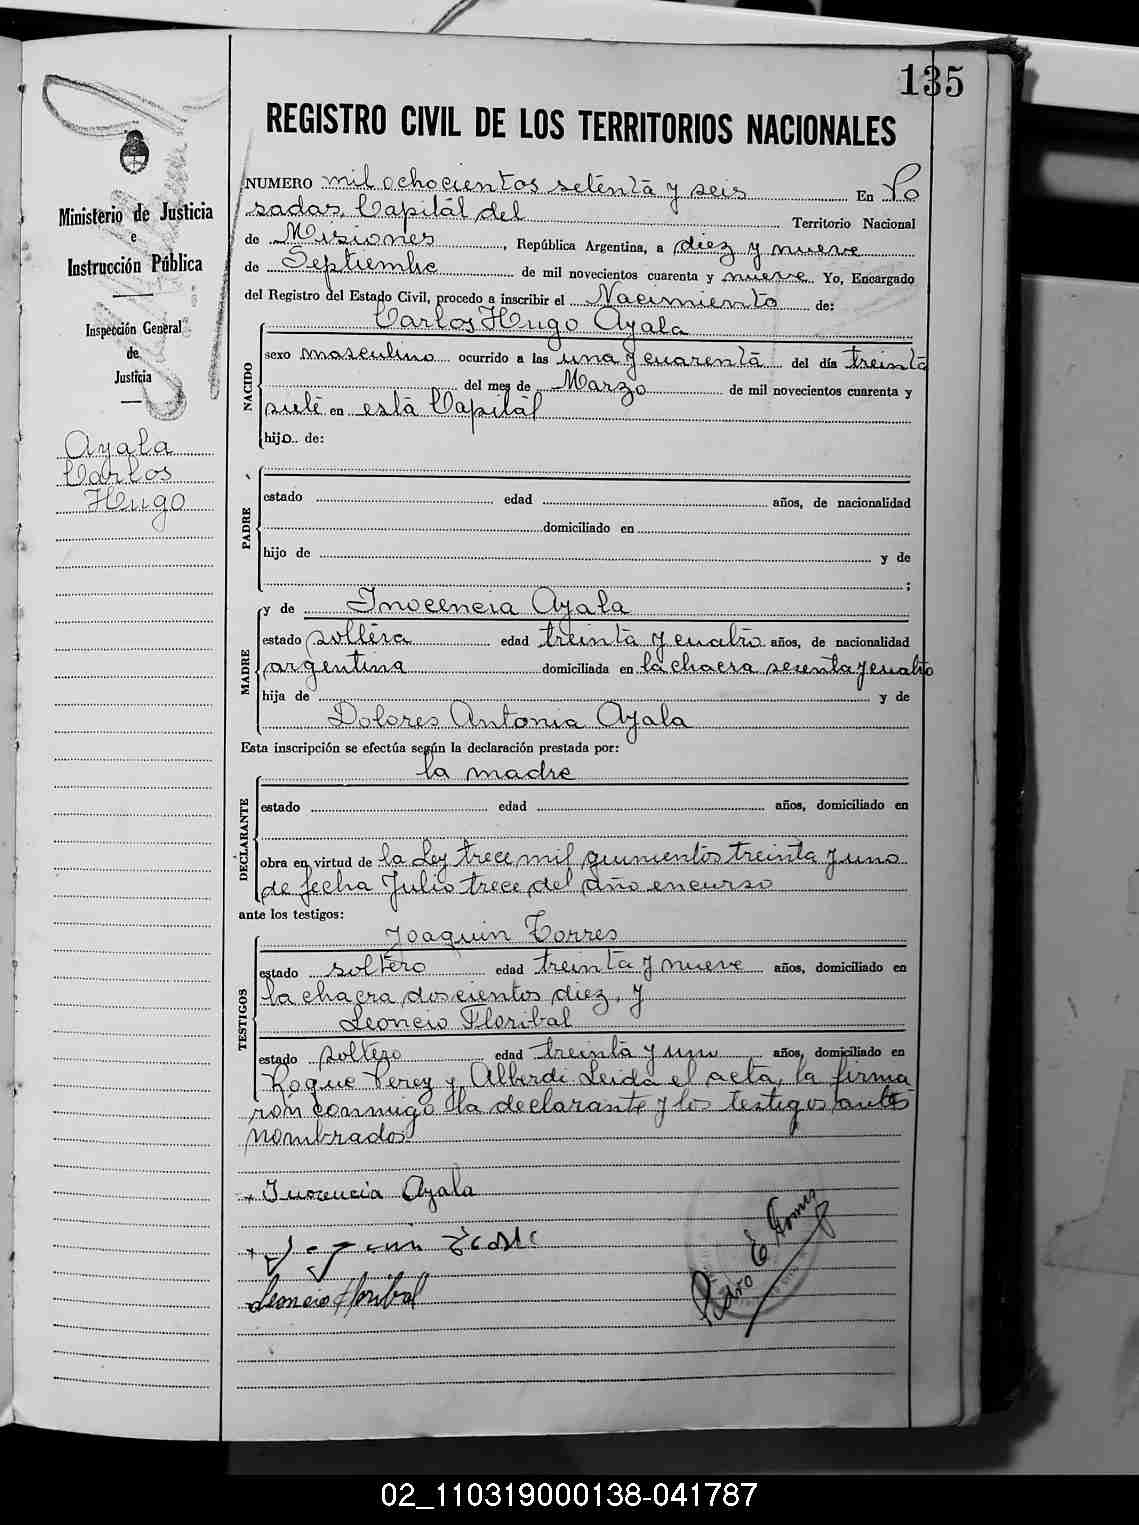 135
REGISTRO CIVIL DE LOS TERRITORIOS NACIONALES
Ministerio de Justicia
e
Instrucción Pública
Inspección General
de
Justicia
Ayala
Carlos
Hugo
NUMERO mil ochocientos setenta y seis En Po
sadas, Capital del Territorio Nacional
de Misiones, República Argentina, a diez y nueve
de Septiembre de mil novecientos cuarenta y nueve Yo, Encargado
del Registro del Estado Civil, procedo a inscribir el Nacimiento de:
Carlos Hugo Ayala
NACIDO
sexo masculino ocurrido a las una y cuarenta del día treinta
del mes de Marzo de mil novecientos cuarenta y
siete en esta Capital
hijo de:
PADRE
estado edad años, de nacionalidad
domiciliado en
hijo de y de
;
MADRE
y de Inocencia Ayala
estado soltera edad treinta y cuatro años, de nacionalidad
argentina domiciliada en la chacra sesenta y cuatro
hija de y de
Dolores Antonia Ayala
Esta inscripción se efectúa según la declaración prestada por:
la madre
DECLARANTE
estado edad años, domiciliado en
obra en virtud de la Ley trece mil quinientos treinta y uno
de fecha Julio trece del año en curso
ante los testigos:
Joaquin Torres
TESTIGOS
estado soltero edad treinta y nueve años, domiciliado en
la chacra doscientos diez, y
Leoncio Floribal
estado soltero edad treinta y uno años, domiciliado en
Roque Perez y Alberdi. Leida el acta, la firma
rón conmigo la declarante y los testigos antes
nombrados.
Inocencia Ayala
Leoncio Floribal
Pedro E Gomez
02_110319000138-041787